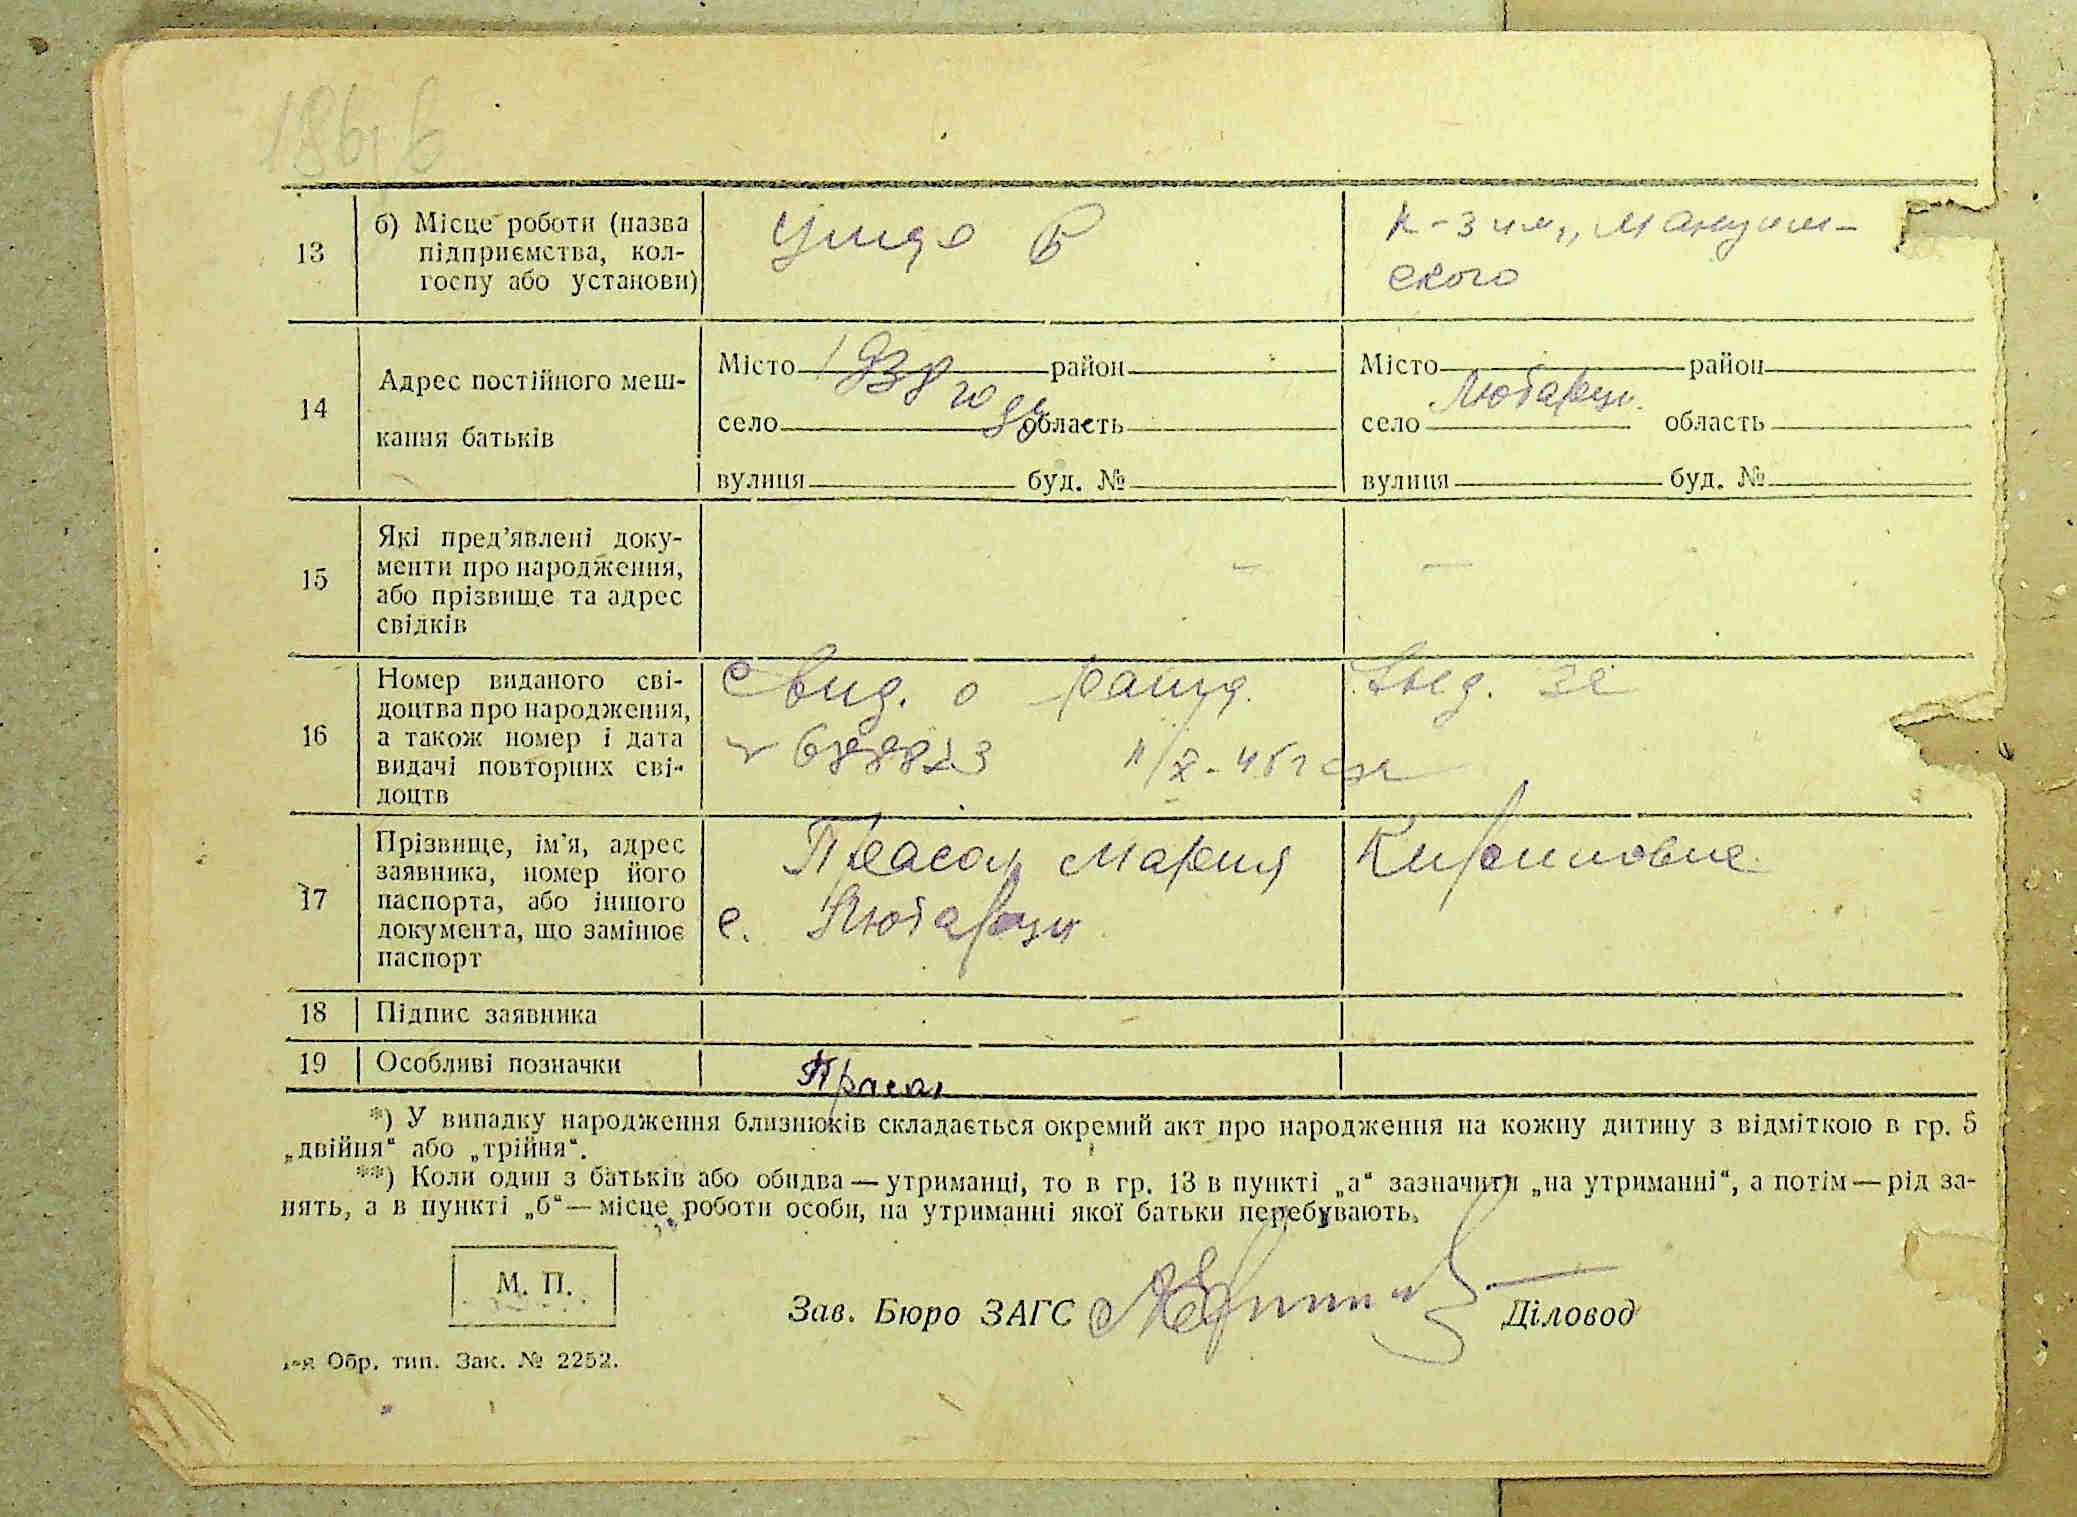 13
б) Місце роботи (назва
підприємства, кол-
госпу або установи)
умер в
к-з им. „Мануиль-
ского
14
Адрес постійного меш-
кання батьків
Місто 1938 район
село году область
вулиця буд. №
Місто район
село Лютарци область
вулиця буд. №
15
Які пред’явлені доку-
менти про народження,
або прізвище та адрес
свідків
—
—
16
Номер виданого сві-
доцтва про народження,
а також номер і дата
видачі повторних сві-
доцтв
Свид. о рожд. выд. за
11/X-
17
Прізвище, ім’я, адрес
заявника, номер його
паспорта, або іншого
документа, що замінює
паспорт
Прасол Мария Кириловна
с. Лютарци
18
Підпис заявника
19
Особливі позначки
Прасол
*) У випадку народження близнюків складається окремий акт про народження на кожну дитину з відміткою в гр. 5
„двійня“ або „трійня“.
**) Коли один з батьків або обидва — утриманці, то в гр. 13 в пункті „а“ зазначити „на утриманні“, а потім — рід за-
нять, а в пункті „б“ — місце роботи особи, на утриманні якої батьки перебувають.
М. П.
Зав. Бюро ЗАГС
Діловод
1-я Обр. тип. Зак. № 2252.